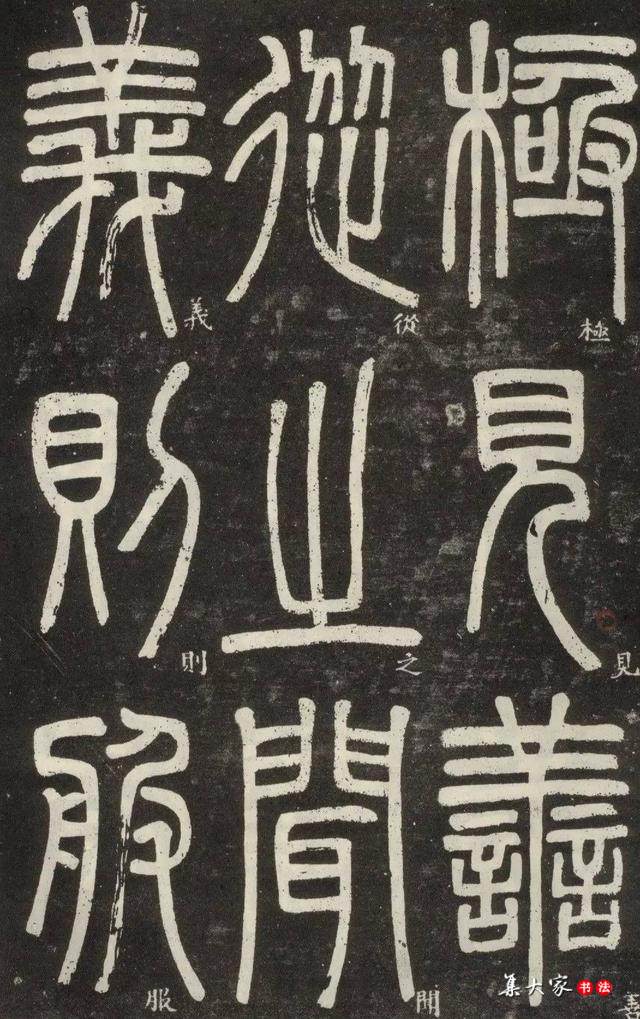 極見善
極見善
從之聞
從之聞
義則服
義則服
集大家书法